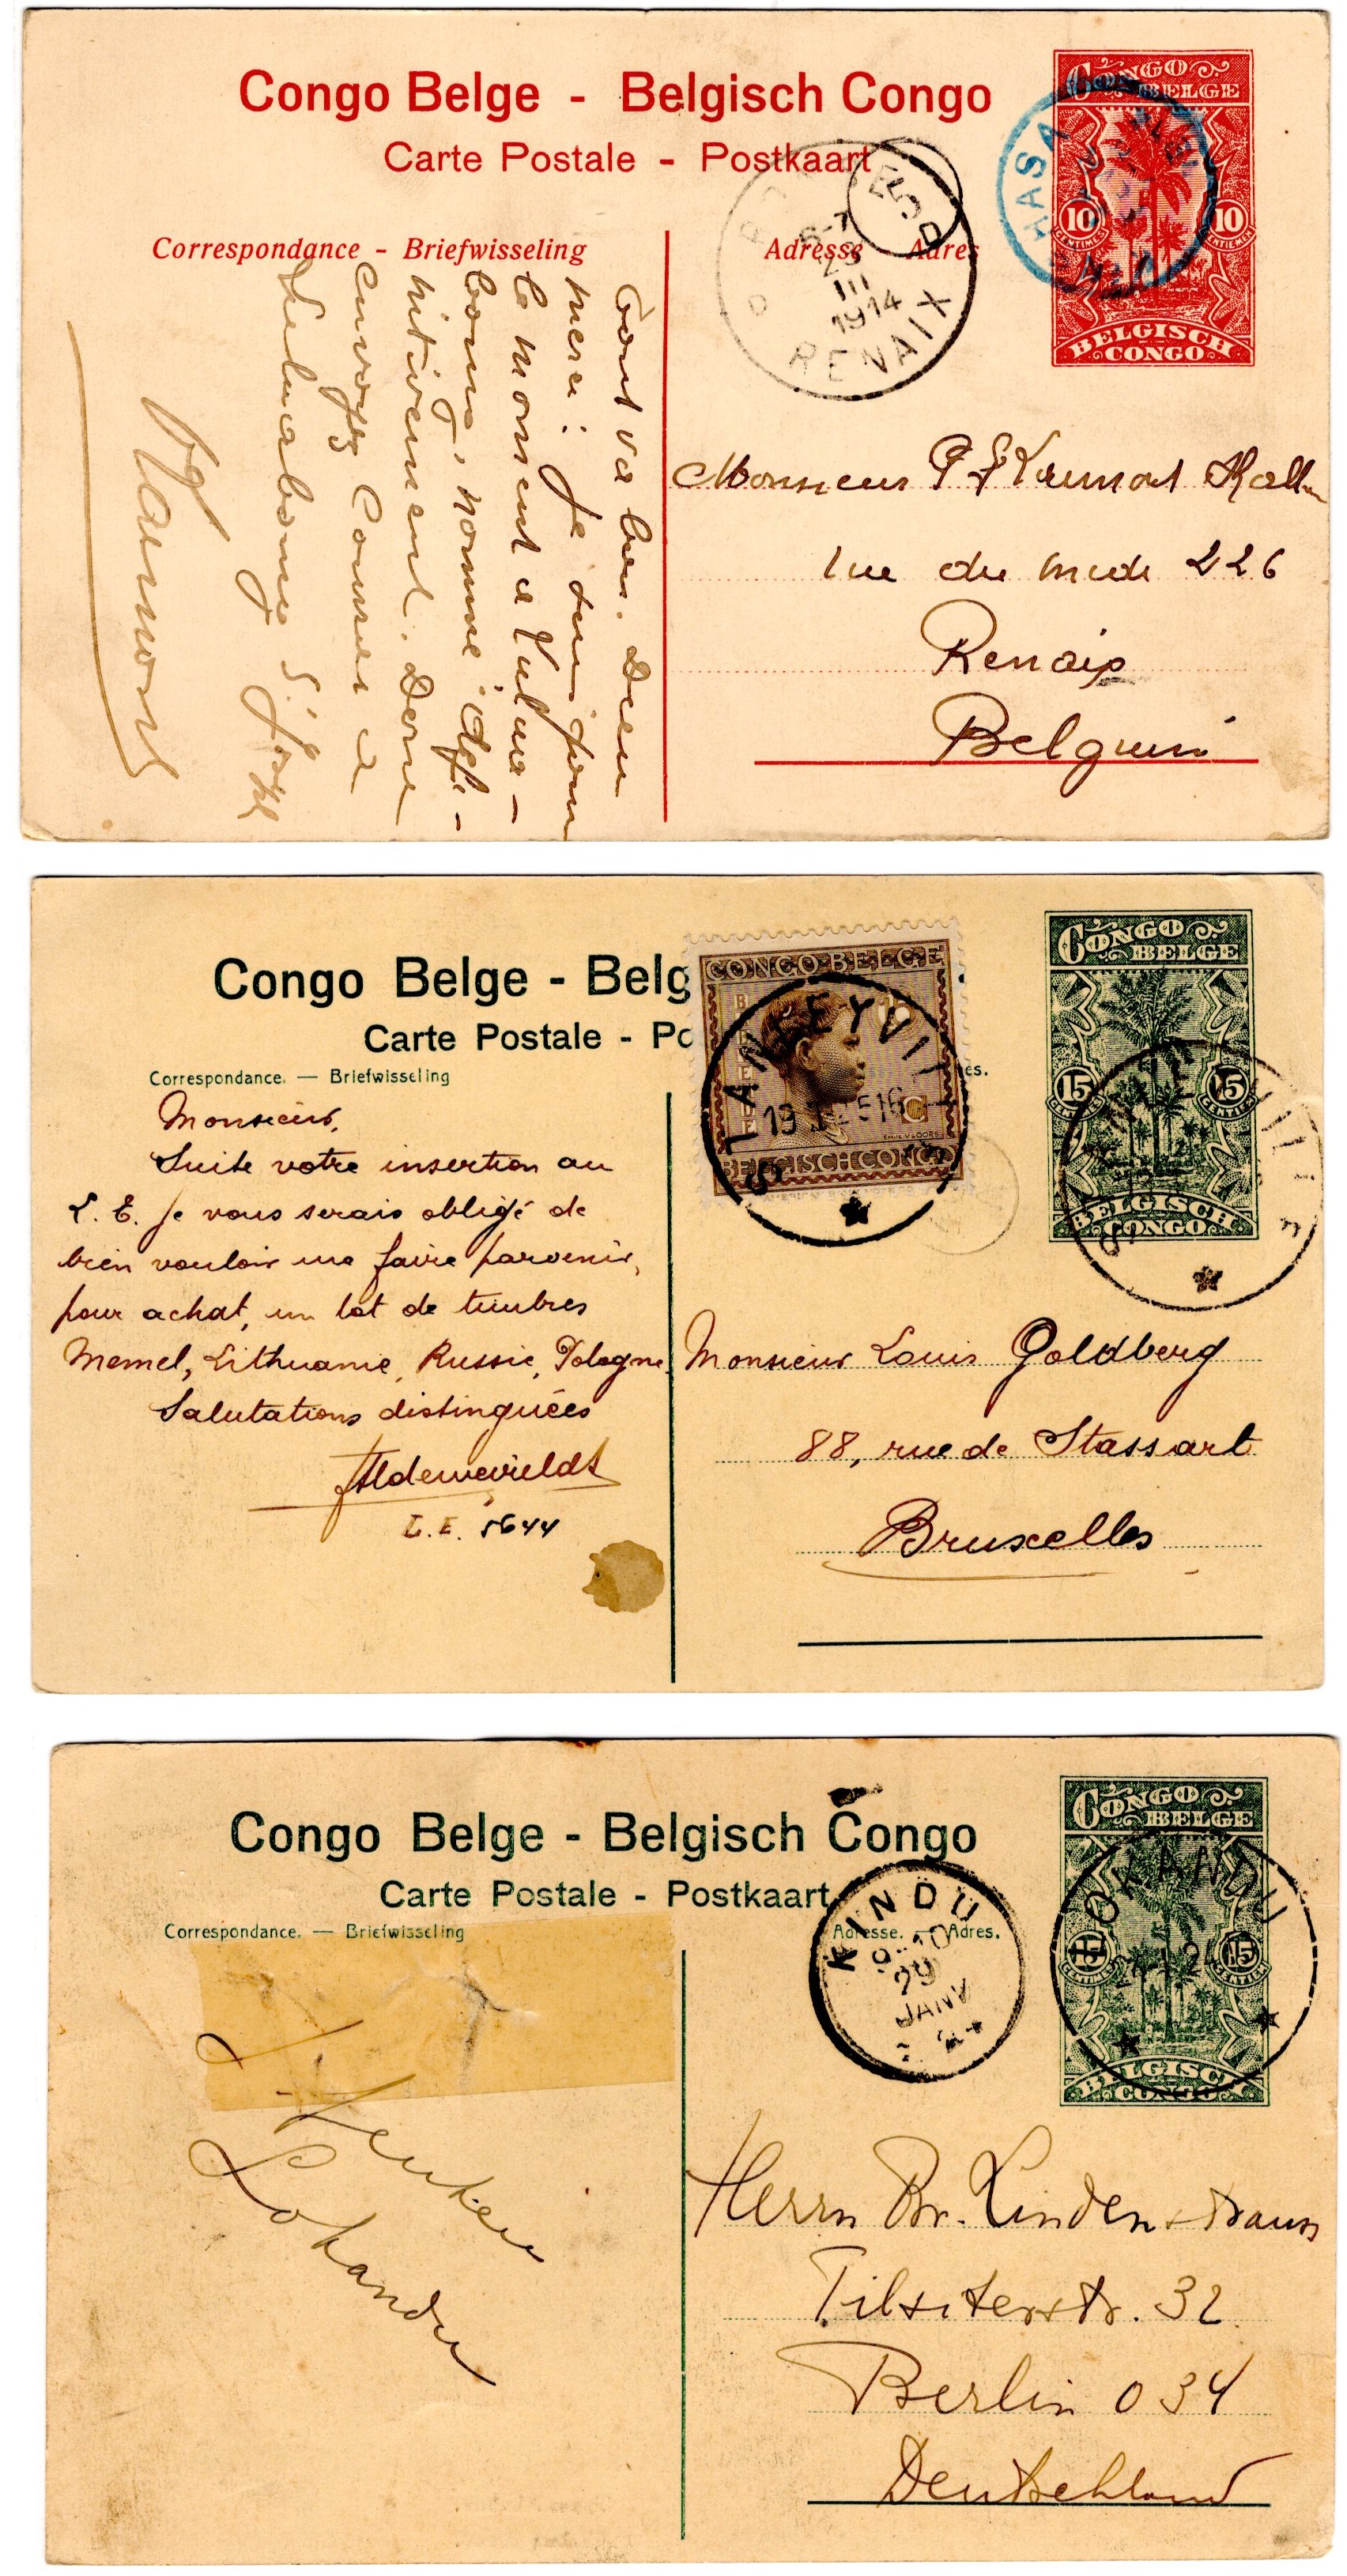 Congo Belge - Belgisch Congo
Carte Postale - Postkaart
Correspondance - Briefwisseling
Adresse Adres
CONGO BELGE
10 CENTIMES
10 CENTIEMEN
BELGISCH CONGO
5 D
6-7
23
III
1914
RENAIX
HASA
Tout va bien. Dieu
merci. Je suis pour
le moment a
nommé défi-
nitivement.
envoyez
Monsieur
rue du Midi 226
Renaix
Belgium
Congo Belge - Belg
Carte Postale - Po
Correspondance. — Briefwisseling
es.
CONGO BELGE
BELGISCH CONGO
STANLEYVILL
19
CONGO BELGE
15 CENTIMES
15 CENTIEM
BELGISCH CONGO
Monsieur,
Suite votre insertion au
L. E. je vous serais obligé de
bien vouloir me faire parvenir,
pour achat, un lot de timbres
Memel, Lithuanie, Russie, Pologne
Salutations distinguées
L. E. 5644
Monsieur Louis Goldberg
88, rue de Stassart
Bruxelles
Congo Belge - Belgisch Congo
Carte Postale - Postkaart
Correspondance. — Briefwisseling
Adresse. Adres.
KINDU
29
JANV
CONGO BELGE
15 CENTIMES
15 CENTIEM
BELGISCH CONGO
LOKANDU
Lokandu
Herrn Br. Lindenstrauss
Tilsiterstr. 32
Berlin O 34
Deutschland